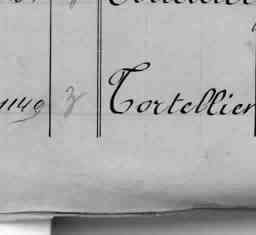 1149 3 Tortellier